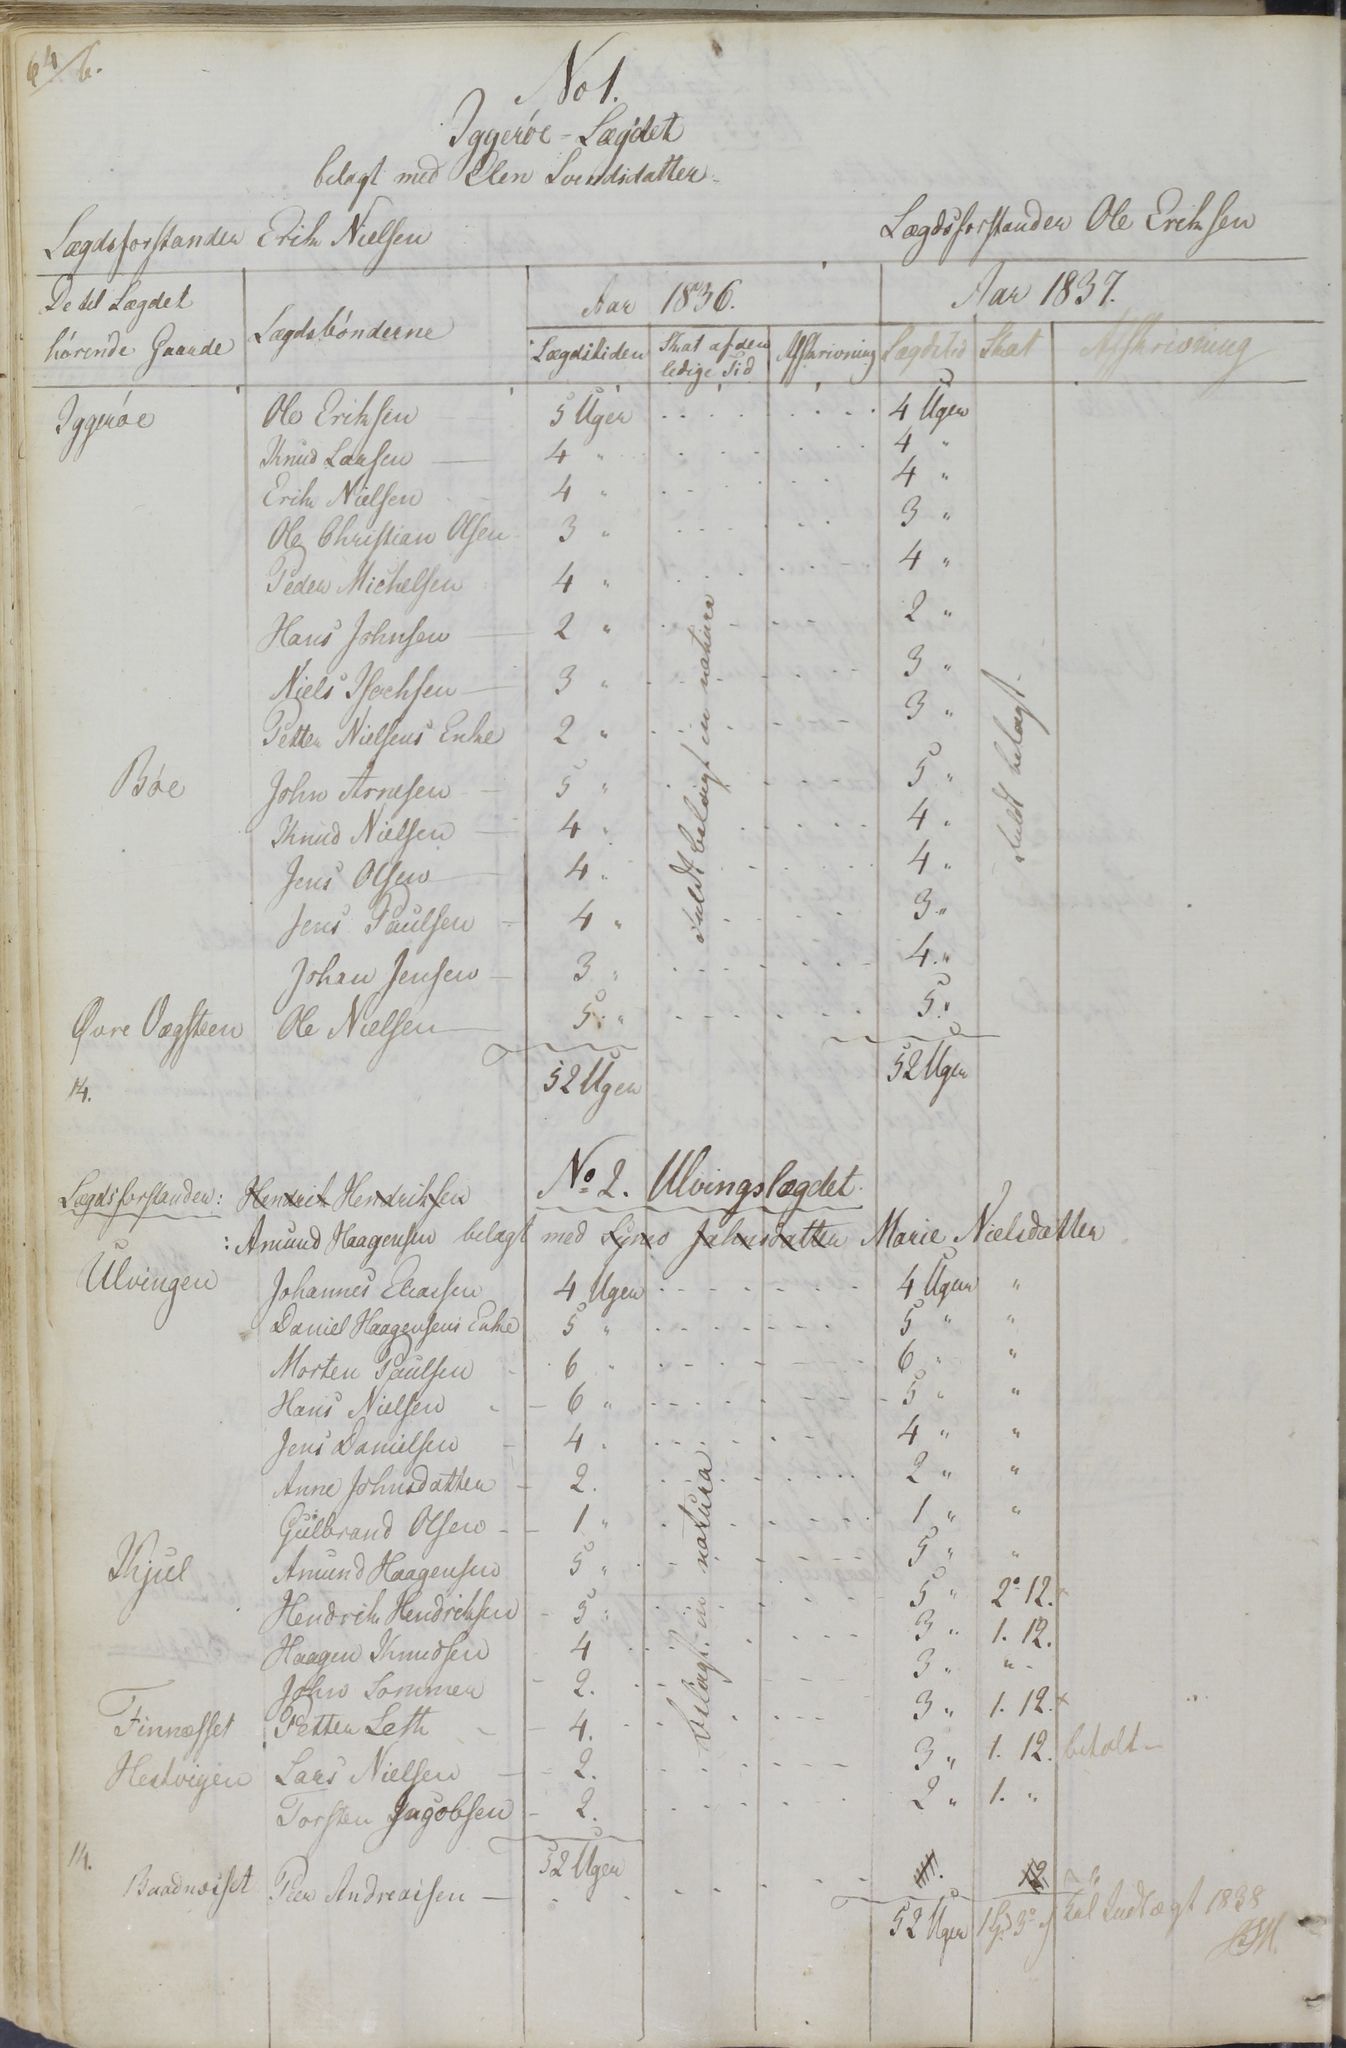 64/6.
No 1.
Iggerøe-Lægdet
belagt med Elen Svendsdatter
Lægdsforstander Erik Nielsen Lægdsforstander Ole Eriksen
De til Lægdet hørende Gaarde Lægdsbønderne Aar 1836. Aar 1837.
Lægdstiden Skat af den ledige Tid Afskrivning Lægdstid Skat Afskrivning
Iggerøe Ole Eriksen 5 Uger 4 Uger
Knud Larsen 4 " 4 "
Erik Nielsen 4 " 4 "
Ole Christian Olsen 3 " 3 "
Peder Michelsen 4 " 4 "
Hans Johnsen 2 " 2 "
Niels Isachsen 3 " 3 "
Petter Nielsens Enke 2 " 3 "
Bøe John Arnesen 5 " 5 "
Knud Nielsen 4 " 4 "
Jens Olsen 4 " 4 "
Jens Paulsen 4 " 3 "
Johan Jensen 3 " 4 "
Øvre Vægsteen Ole Nielsen 5 " 5 "
fuldt belagt in natura
fuldt belagt
14. 52 Uger 52 Uger
No 2. Ulvingslægdet
Lægdsforstander: Hendrik Hendriksen
: Amund Haagensen belagt med Johnsdatter Marie Nielsdatter
Ulvingen Johannes Eliasen 4 Uger 4 Uger "
Daniel Haagensens Enke 5 " 5 " "
Morten Paulsen 6 " 6 " "
Hans Nielsen 6 " 5 " "
Jens Danielsen 4 " 4 " "
Anne Johnsdatter 2. 2 " "
Gulbrand Olsen 1 " 1 " "
Kjul Amund Haagensen 5 " 5 " "
Hendrik Hendriksen 5 " 5 " 2. 12.
Haagen Knudsen 4 3 " 1. 12.
John Sommer 2. 3 " "
Finnesset Petter Leth 4. 3 " 1. 12. x
Hestvigen Lars Nielsen 2. 3 " 1. 12. betalt
Torsten Jagobsen 2. 2 " 1. "
belagt in natura
14. 52 Uger
Baadnesset Peer Andreassen
52 Uger Indlægt 1838